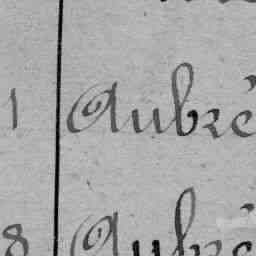 1 Aubré
8 Aubré